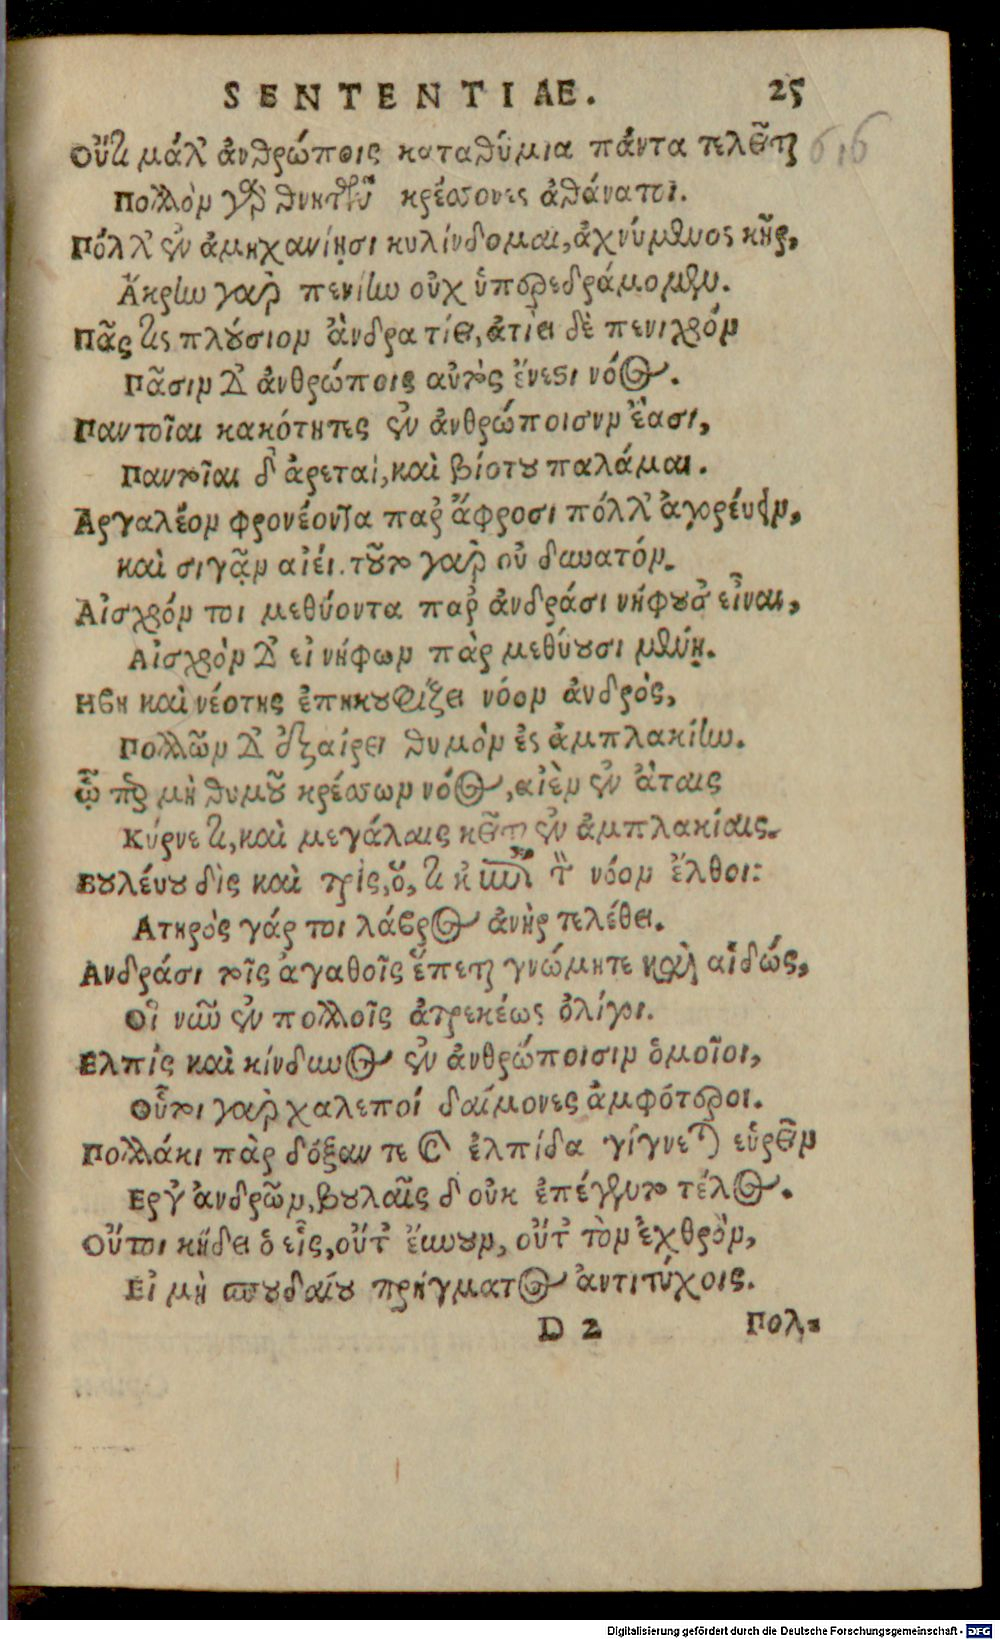 SENTENTIAE. 25
616
Οὔτι μάλ' ἀνθρώποις καταθύμια πάντα τελεῖται
Πολλὸν γὰρ θνητῶν κρέσσονες ἀθάνατοι.
Πόλλ' ἐν ἀμηχανίῃσι κυλίνδομαι, ἀχνύμενος κῆρ,
Ἄκρην γὰρ πενίην οὐχ ὑπερεδράμομεν.
Πᾶς τις πλούσιον ἄνδρα τίει, ἀτίει δὲ πενιχρόν
Πᾶσιν δ' ἀνθρώποις αὐτὸς ἔνεστι νόος.
Παντοῖαι κακότητες ἐν ἀνθρώποισυν ἔασι,
Παντοῖαι δ' ἀρεταὶ, καὶ βίοτου παλάμαι.
Αργαλέον φρονέοντα παρ' ἄφροσι πόλλ' ἀγορέυειν,
καὶ σιγᾷν αἰέι. τοῦτο γὰρ οὐ δυνατόν.
Αἰσχρόν τοι μεθύοντα παρ' ἀνδράσι νήφουσ' εἶναι,
Αἰσχρὸν δ' εἰ νήφων πὰρ μεθύουσι μένῃ.
Ηβη καὶ νέοτης ἐπηκουφίζει νόον ἀνδρὸς,
Πολλῶν δ' ἐξαίρει θυμὸν ἐς ἀμπλακίην.
ᾧ περ μὴ θυμοῦ κρέσσων νόος, αἰὲν ἐν ἄταις
Κύρνε τι, καὶ μεγάλαις κεῖται ἐν ἀμπλακίαις.
Βουλέυου δὶς καὶ τρὶς, ὅ, τι κ' ἐπὶ τὸν νόον ἔλθοι:
Ατηρὸς γάρ τοι λάβρος ἀνὴρ τελέθει.
Ανδράσι τοῖς ἀγαθοῖς ἕπεται γνώμητε καὶ αἰδώς,
Οἳ νῦν ἐν πολλοῖς ἀτρεκέως ὀλίγοι.
Ελπὶς καὶ κίνδυνος ἐν ἀνθρώποισιν ὁμοῖοι,
Οὗτοι γὰρ χαλεποί δαίμονες ἀμφότεροι.
Πολλάκι πὰρ δόξαν τε καὶ ἐλπίδα γίγνεται εὑρεῖν
Εργ' ἀνδρῶν, βουλαῖς δ οὐκ ἐπέγεντο τέλος.
Οὔτοι κήδει ὁ εἷς, οὔτ' ἔυνουν, οὔτ' τὸν ἐχθρὸν,
Εἰ μὴ σπουδαίου πρήγματος ἀντιτύχοις.
D 2 Πολ-
Digitalisierung gefördert durch die Deutsche Forschungsgemeinschaft - DFG